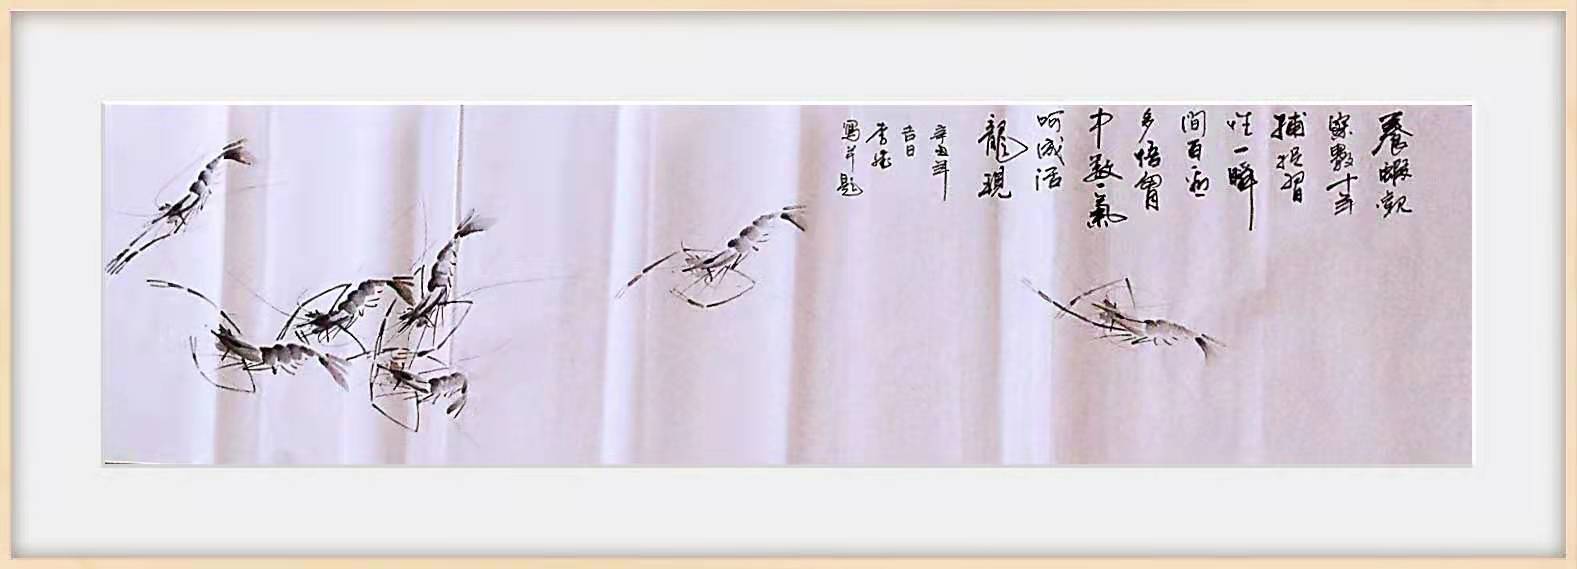 養蝦觀
察數十年
捕捉習
性一瞬
間百忍
多悟胷
中数氣
呵成活
龍現
辛丑年
吉日
寫并題